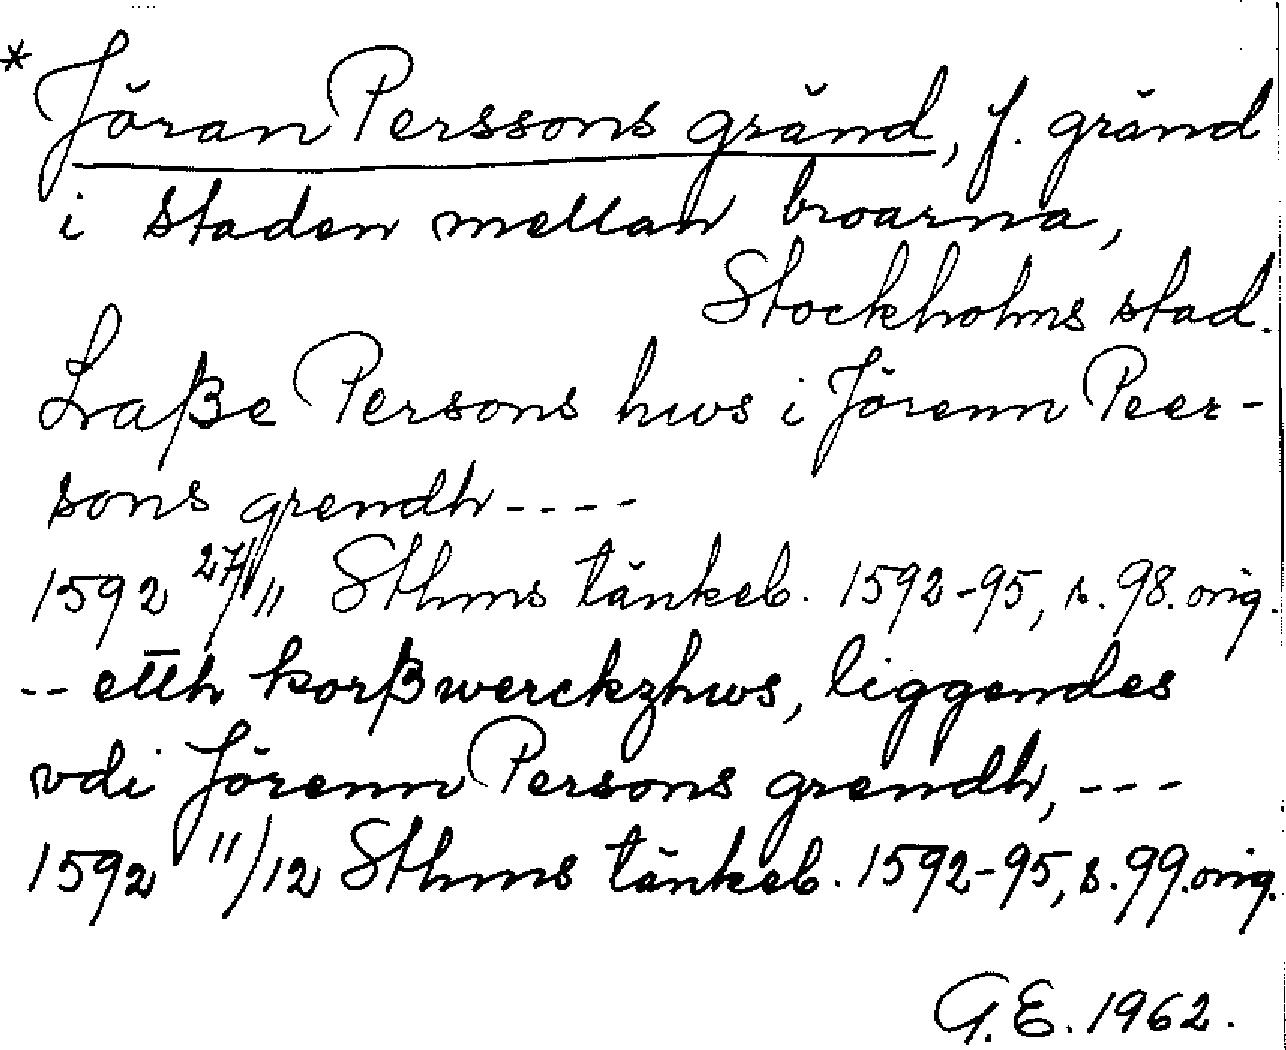 * Jöran Perssons gränd, f. gränd
i staden mellan broarna,
Stockholms stad.
Laße Persons hws i Jörenn Peer-
sons grendh ----
1592 27/11 Sthms tänkeb. 1592-95, s. 98. orig.
-- etth korßwerckzhws, liggendes
vdi Jörenn Persons grendh, ---
1592 11/12 Sthms tänkeb. 1592-95, s. 99. orig.
G. E. 1962.